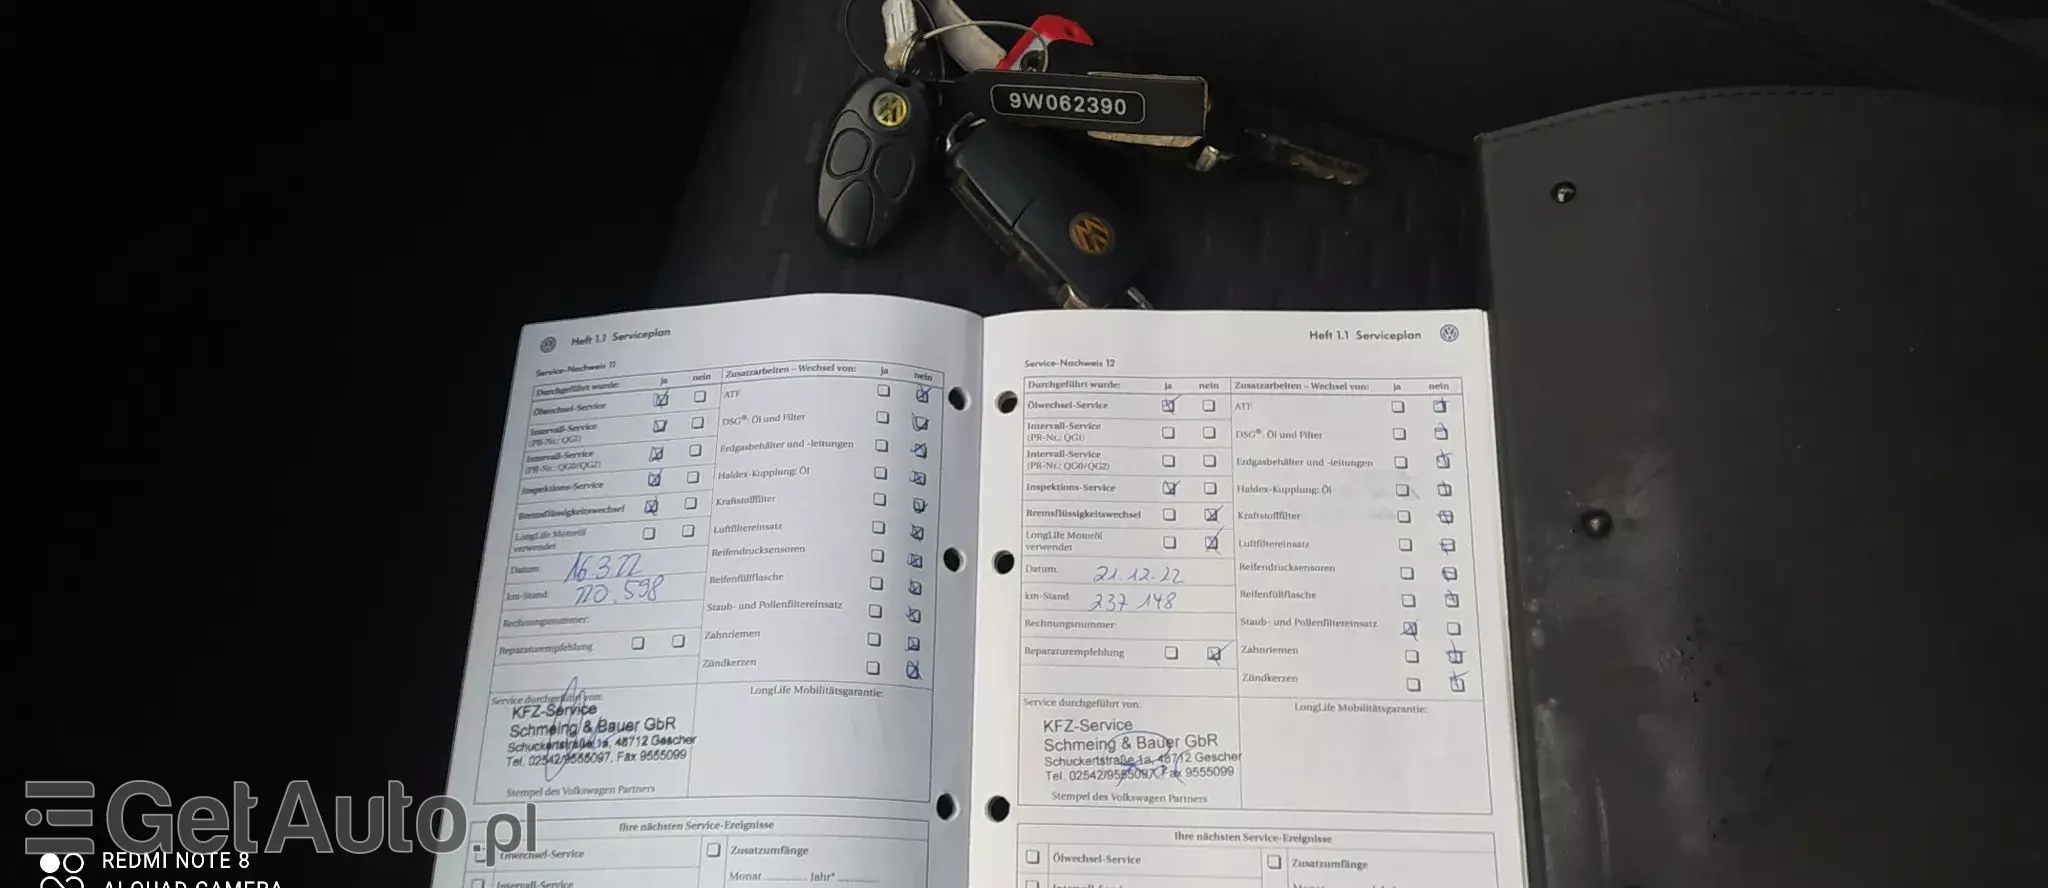 9W062390
Heft 1.1 Serviceplan
Service-Nachweis 11
Durchgeführt wurde: ja nein
Ölwechsel-Service
Intervall-Service
(PR-Nr.: QG1)
Intervall-Service
(PR-Nr.: QG0/QG2)
Inspektions-Service
Bremsflüssigkeitswechsel
LongLife Motoröl
verwendet
Datum: 16.3.22
km-Stand: 220.598
Rechnungsnummer:
Reparaturempfehlung
Zusatzarbeiten – Wechsel von: ja nein
ATF
DSG®: Öl und Filter
Erdgasbehälter und -leitungen
Haldex-Kupplung: Öl
Kraftstofffilter
Luftfiltereinsatz
Reifendrucksensoren
Reifenfüllflasche
Staub- und Pollenfiltereinsatz
Zahnriemen
Zündkerzen
Service durchgeführt von:
KFZ-Service
Schmeing & Bauer GbR
Schuckertstraße 1a, 48712 Gescher
Tel. 02542/9555097, Fax 9555099
Stempel des Volkswagen Partners
LongLife Mobilitätsgarantie:
Ihre nächsten Service-Ereignisse
Ölwechsel-Service
Intervall-Service
Zusatzumfänge
Monat Jahr*
Heft 1.1 Serviceplan
Service-Nachweis 12
Durchgeführt wurde: ja nein
Ölwechsel-Service
Intervall-Service
(PR-Nr.: QG1)
Intervall-Service
(PR-Nr.: QG0/QG2)
Inspektions-Service
Bremsflüssigkeitswechsel
LongLife Motoröl
verwendet
Datum: 21.12.22
km-Stand: 237 148
Rechnungsnummer:
Reparaturempfehlung
Zusatzarbeiten – Wechsel von: ja nein
ATF
DSG®: Öl und Filter
Erdgasbehälter und -leitungen
Haldex-Kupplung: Öl
Kraftstofffilter
Luftfiltereinsatz
Reifendrucksensoren
Reifenfüllflasche
Staub- und Pollenfiltereinsatz
Zahnriemen
Zündkerzen
Service durchgeführt von:
KFZ-Service
Schmeing & Bauer GbR
Schuckertstraße 1a, 48712 Gescher
Tel. 02542/9555097, Fax 9555099
Stempel des Volkswagen Partners
LongLife Mobilitätsgarantie:
Ihre nächsten Service-Ereignisse
Ölwechsel-Service
Zusatzumfänge
GetAuto.pl
REDMI NOTE 8
AI QUAD CAMERA